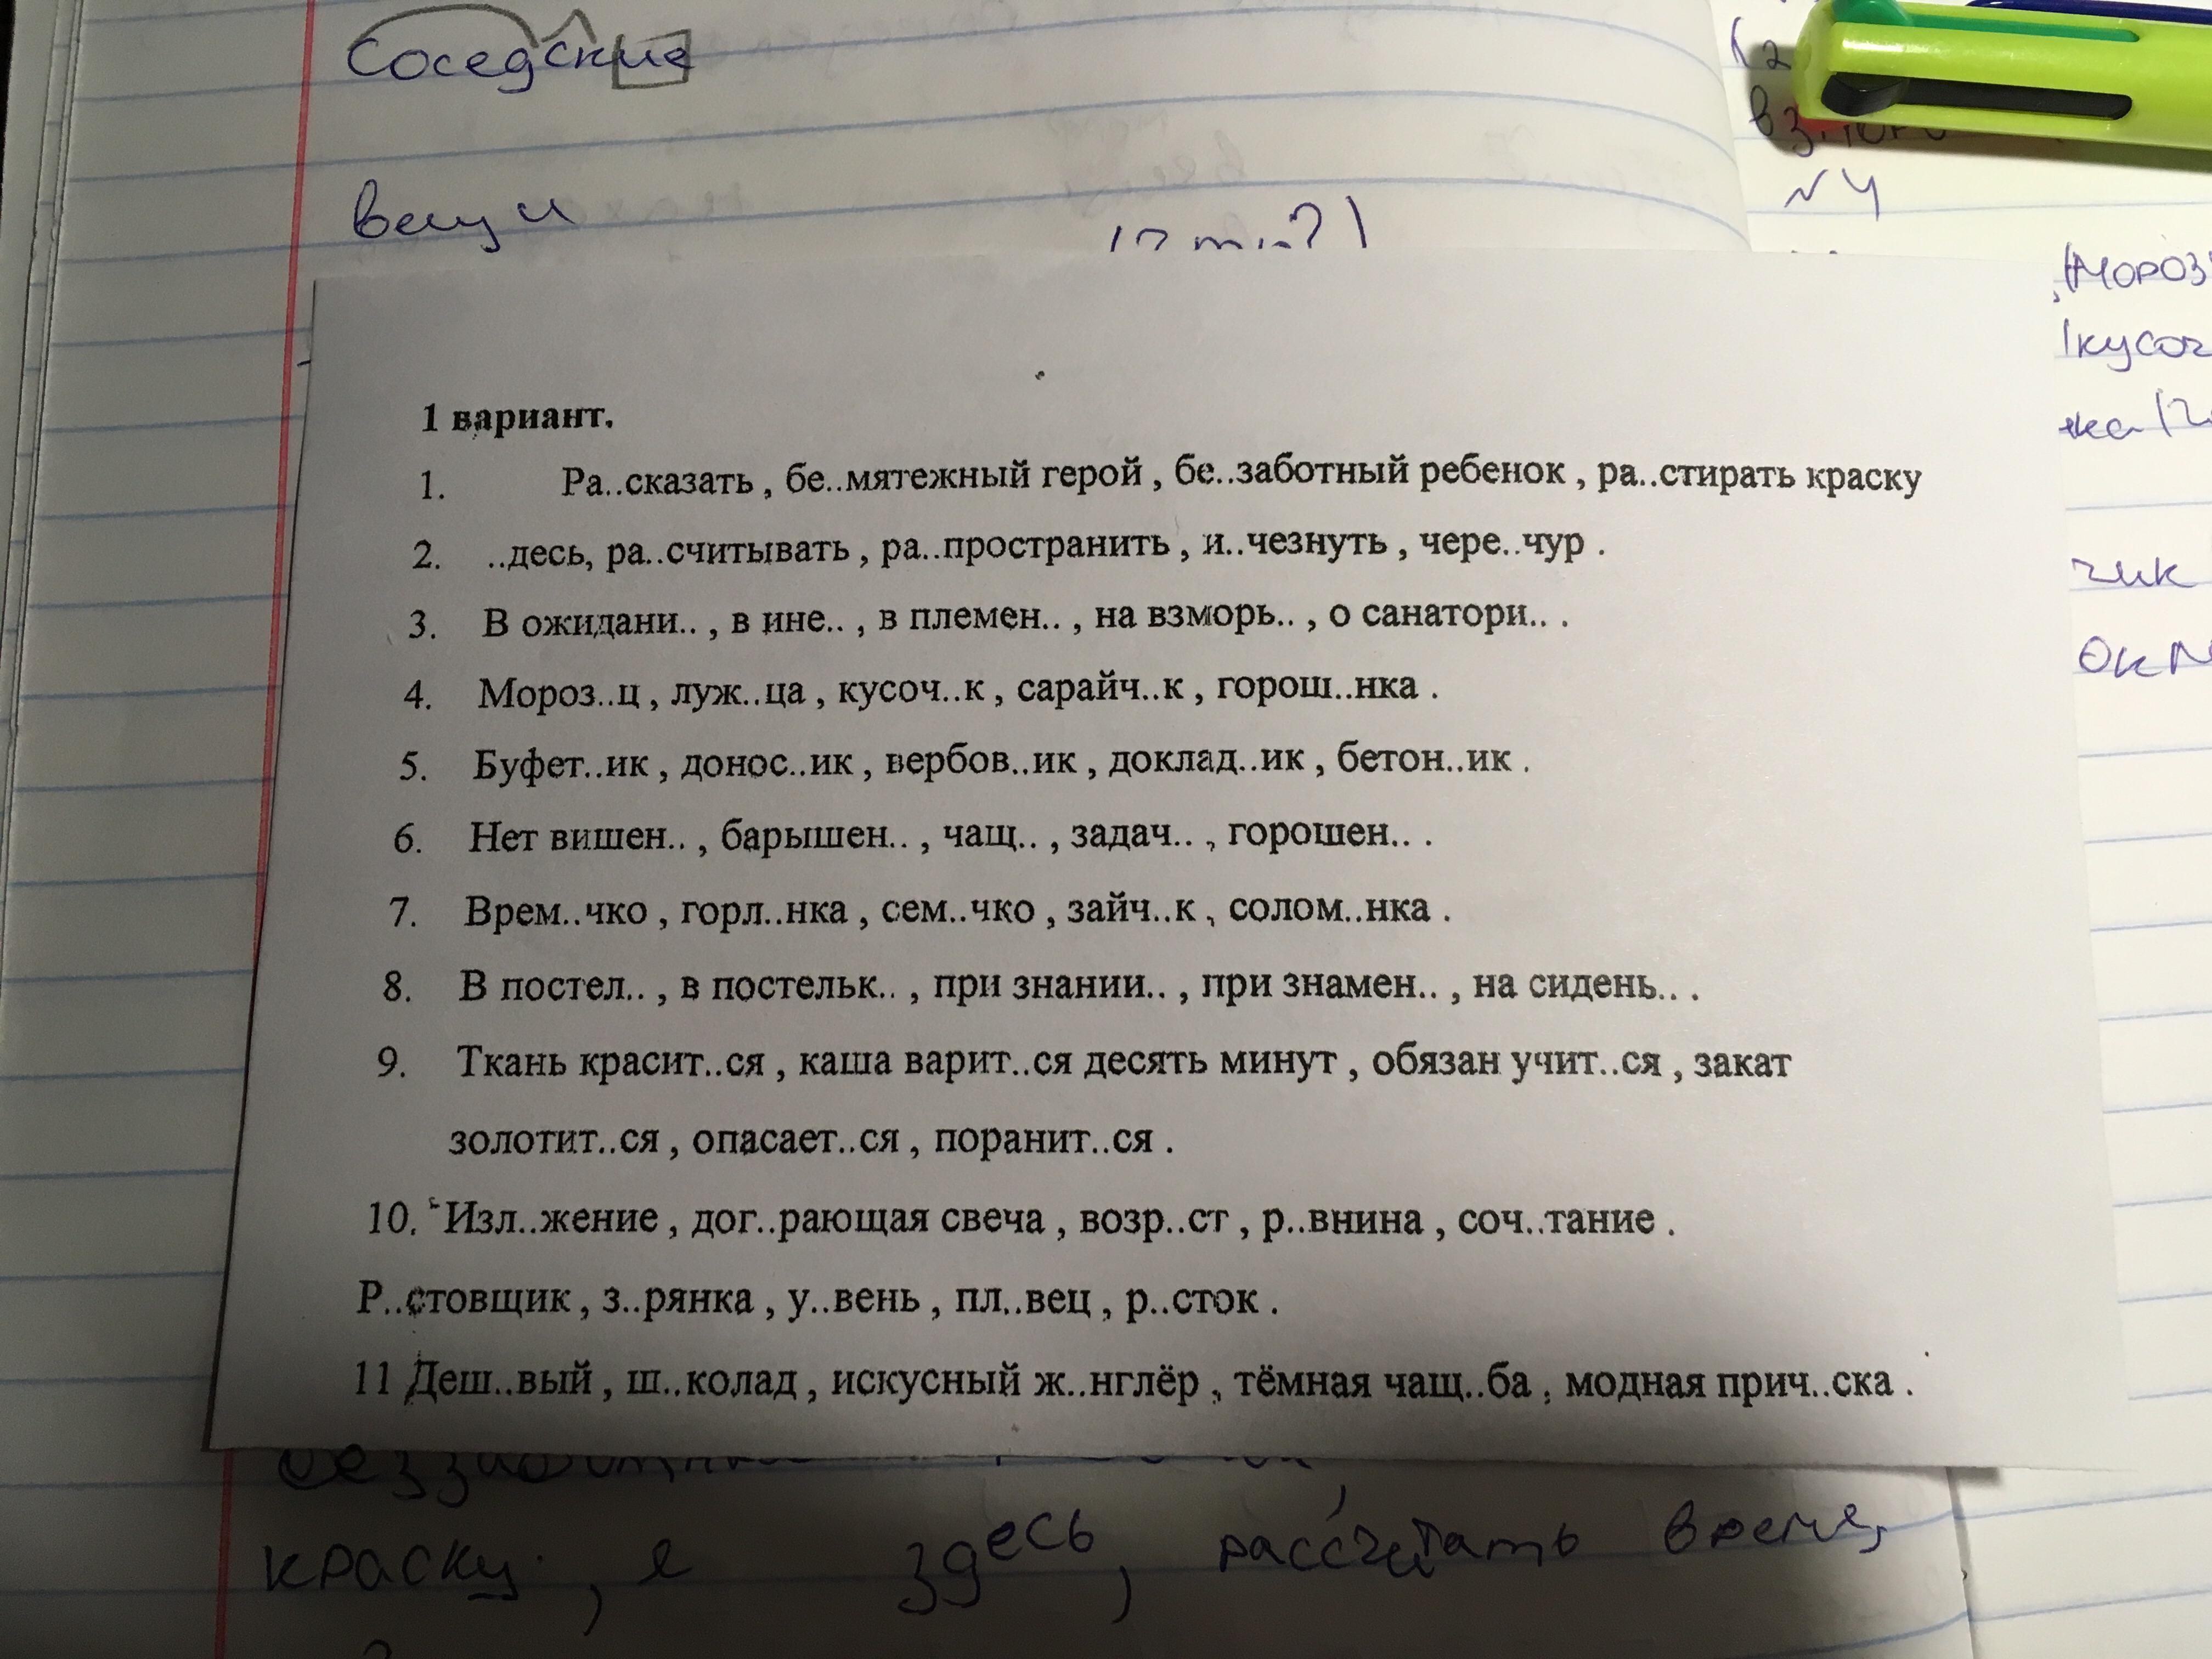 соседские
вещи
№4
(мороз
(кусоч
чик
1 вариант.
1. Ра..сказать , бе..мятежный герой , бе..заботный ребенок , ра..стирать краску
2. ..десь, ра..считывать , ра..пространить , и..чезнуть , чере..чур .
3. В ожидани.. , в ине.. , в племен.. , на взморь.. , о санатори.. .
4. Мороз..ц , луж..ца , кусоч..к , сарайч..к , горош..нка .
5. Буфет..ик , донос..ик , вербов..ик , доклад..ик , бетон..ик .
6. Нет вишен.. , барышен.. , чащ.. , задач.. , горошен.. .
7. Врем..чко , горл..нка , сем..чко , зайч..к , солом..нка .
8. В постел.. , в постельк.. , при знании.. , при знамен.. , на сидень.. .
9. Ткань красит..ся , каша варит..ся десять минут , обязан учит..ся , закат
золотит..ся , опасает..ся , поранит..ся .
10. Изл..жение , дог..рающая свеча , возр..ст , р..внина , соч..тание .
Р..стовщик , з..рянка , у..вень , пл..вец , р..сток .
11 Деш..вый , ш..колад , искусный ж..нглёр , тёмная чащ..ба , модная прич..ска .
краску , е здесь , рассчитать время,